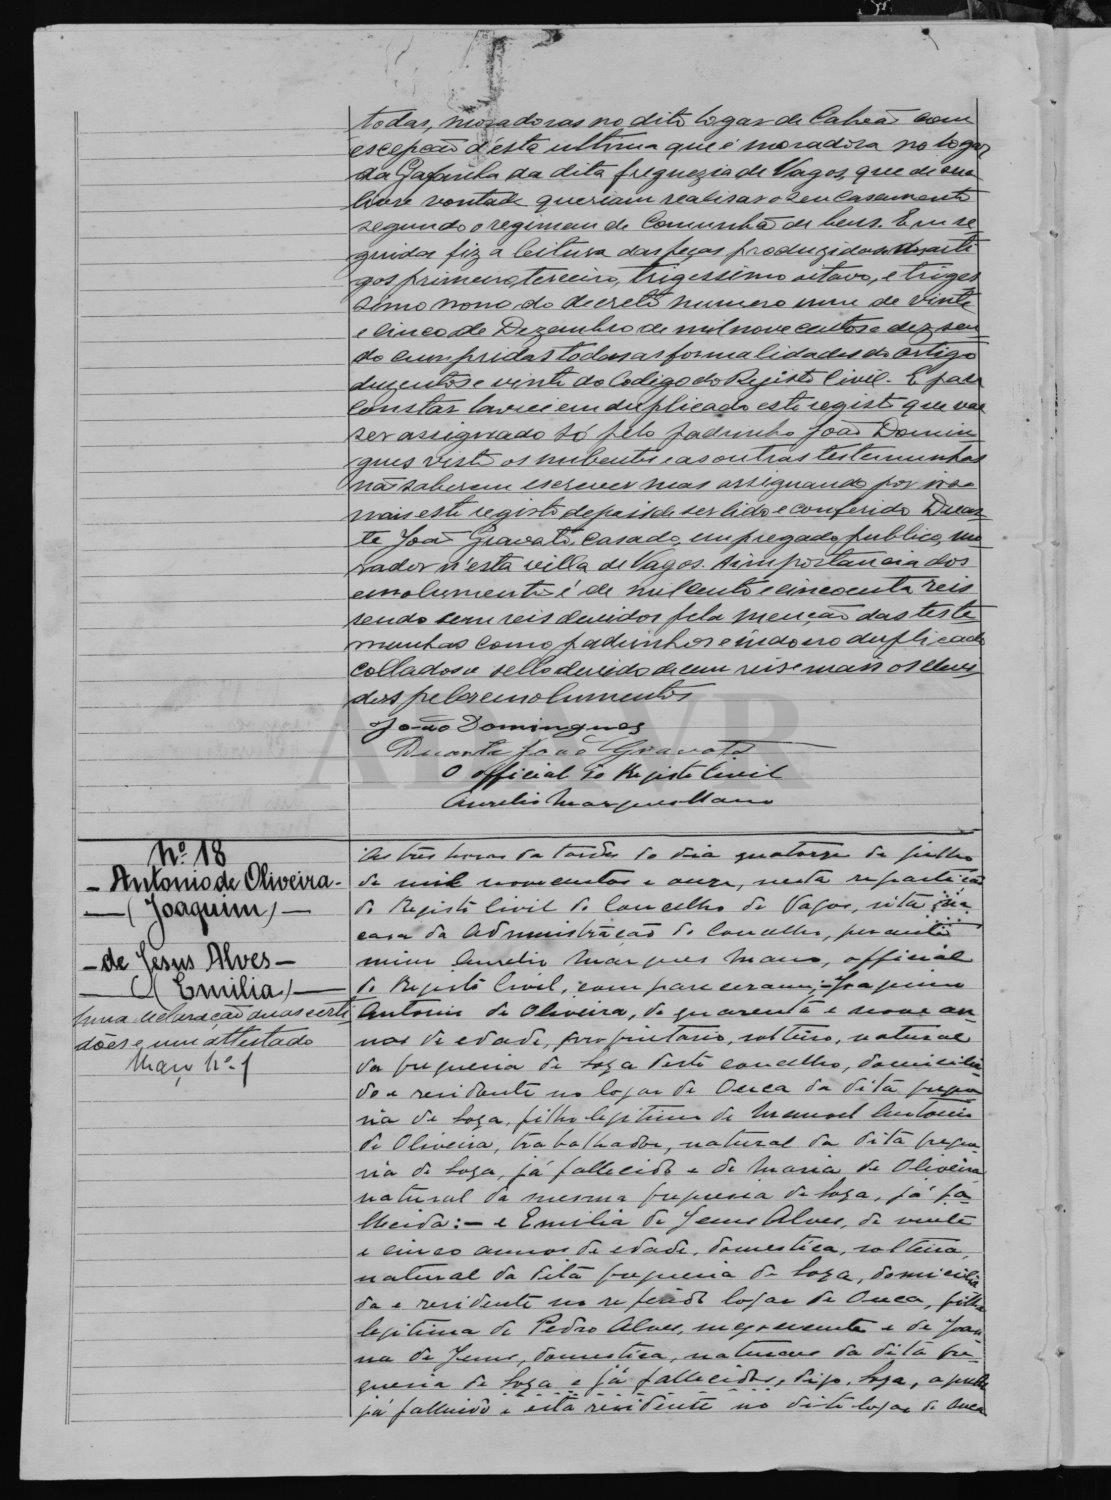 todas, moradoras no dito logar de Cabeço com
escepção d'esta ultima que é moradora no logar
da Gafanha da dita freguezia de Vagos, que de sua
livre vontade queriam realisar o seu casamento
segundo o regimen de Comunhão de bens. Em se
guida fiz a leitura das peças produzidas dos arti
gos primeiro, terceiro, trigessimo oitavo, e triges
simo nono, do decreto numero um de vinte
e cinco de Dezembro de mil nove centos e dez, sen
do cumpridas todas as formalidades do artigo
duzentos e vinte do Codigo do Registo Civil. E para
constar lavrei em duplicado este registo que vae
ser assignado só pelo padrinho João Domin
gues visto os nubentes e as outras testemunhas
não saberem escrever mas assignando por
mais este registo depois de ser lido e conferido Duar
te João Gravato, casado, empregado publico, mo
rador n'esta villa de Vagos. A importancia dos
emolumentos é de mil cento e cincoenta reis
sendo cem reis devidos pela menção das teste
munhas como padrinhos e indo no duplicado
collados o sello devido de cem reis e mais os devi
dos pelos emolumentos
João Domingues
Duarte João Gravato
O official do Registo Civil
Aurelio Marques Mano
Nº 18
Antonio de Oliveira
(Joaquim)
de Jesus Alves
(Emilia)
Uma declaração duas certi
dões e um attestado
Maço Nº 1
As tres horas da tarde do dia quatorze de julho
de mil novecentos e onze, nesta repartição
do Registo Civil do Concelho de Vagos, sita na
casa da Administração do Concelho, perante
mim Aurelio Marques Mano, official
do Registo Civil, compareceram: Joaquim
Antonio de Oliveira, de quarenta e nove an-
nos de edade, proprietario, solteiro, natural
da freguesia de Soza deste concelho, domicilia
do e residente no logar de Ouca da dita fregue
sia de Soza, filho legitimo de Manoel Antonio
de Oliveira, trabalhador, natural da dita fregue
sia de Soza, já fallecido e de Maria de Oliveira
natural da mesma freguesia de Soza, já fa-
llecida: — e Emilia de Jesus Alves, de vinte
e cinco annos de edade, domestica, solteira,
natural da dita freguesia de Soza, domicilia
da e residente no referido logar de Ouca, filha
legitima de Pedro Alves, e de Joan
na de Jesus, domestica, naturaes da dita fre-
guesia de Soza e já fallecidos, digo, Soza, aquelle
já fallecido e esta residente no dito logar de Ouca